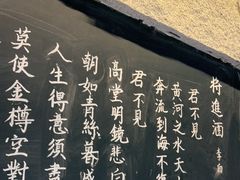 將進酒 李白
君不見
黃河之水天
奔流到海不
君不見
高堂明鏡悲白
朝如青絲暮成
人生得意須盡
莫使金樽空對